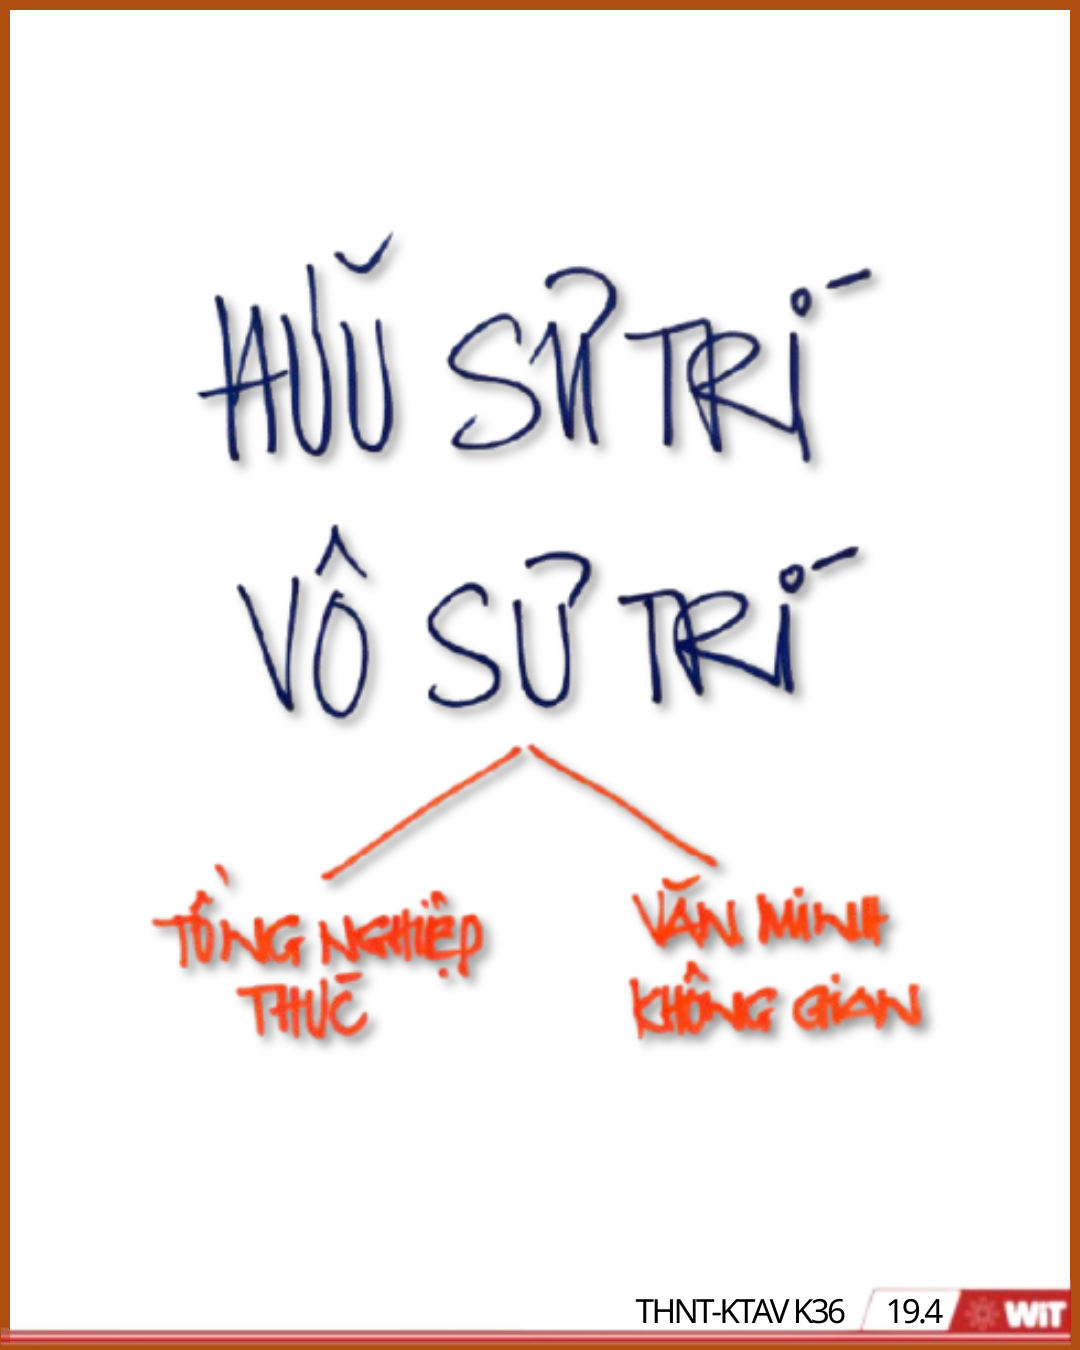 HỮU SỬ TRÍ
VÔ SỬ TRÍ
TỔNG NGHIỆP
THỨC
VĂN MINH
KHÔNG GIAN
THNT-KTAV K36 19.4 WiT